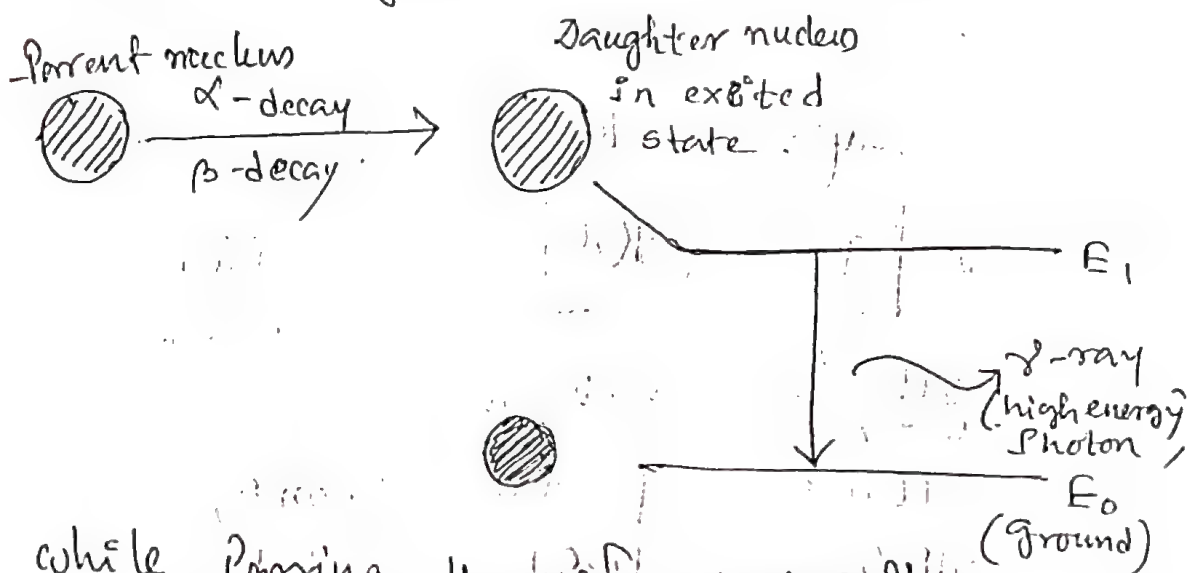 Parent nucleus
α-decay
β-decay
Daughter nucleus
in exited
state.
E1
γ-ray
(high energy
Photon)
E0
(Ground)
while